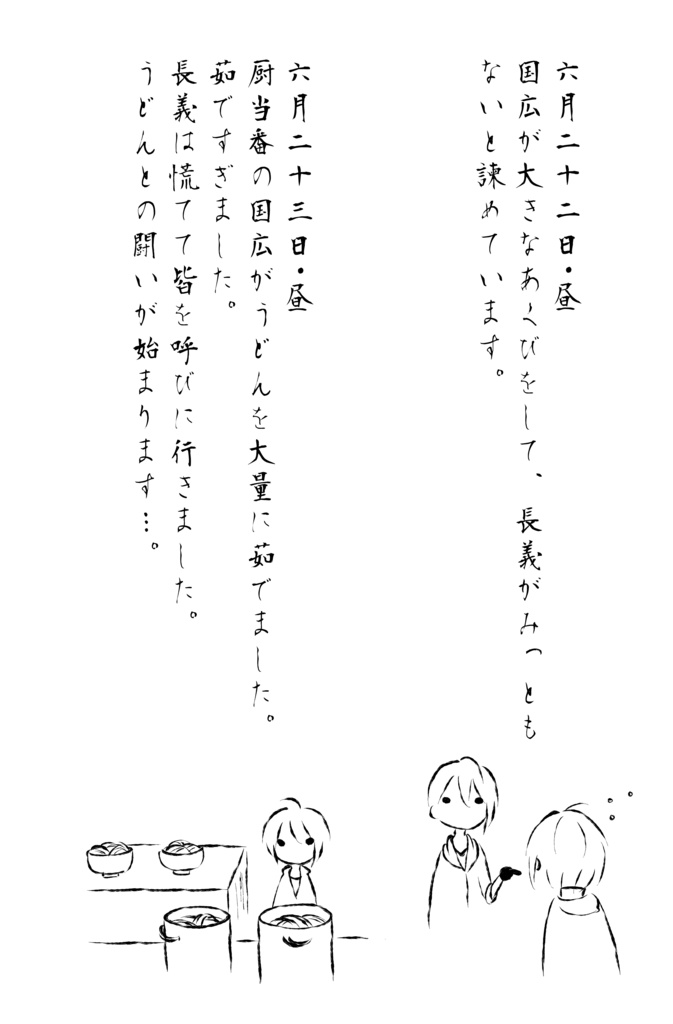 六月二十二日・昼
国広が大きなあくびをして、長義がみっとも
ないと諫めています。
六月二十三日・昼
厨当番の国広がうどんを大量に茹でました。
茹ですぎました。
長義は慌てて皆を呼びに行きました。
うどんとの闘いが始まります…。